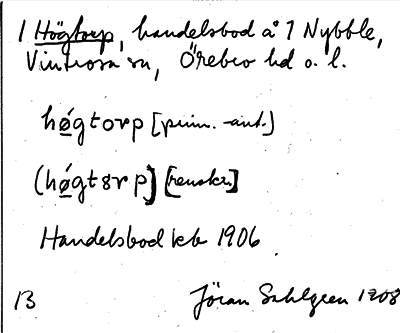 1 Högtorp, handelsbod å 1 Nybble,
Vintrosa sn, Örebro hd o. l.
hǿgtorp [prim.-ant.]
(hǿgtɜrp) [renskr.]
Handelsbod kb 1906.
B Jöran Sahlgren 1908